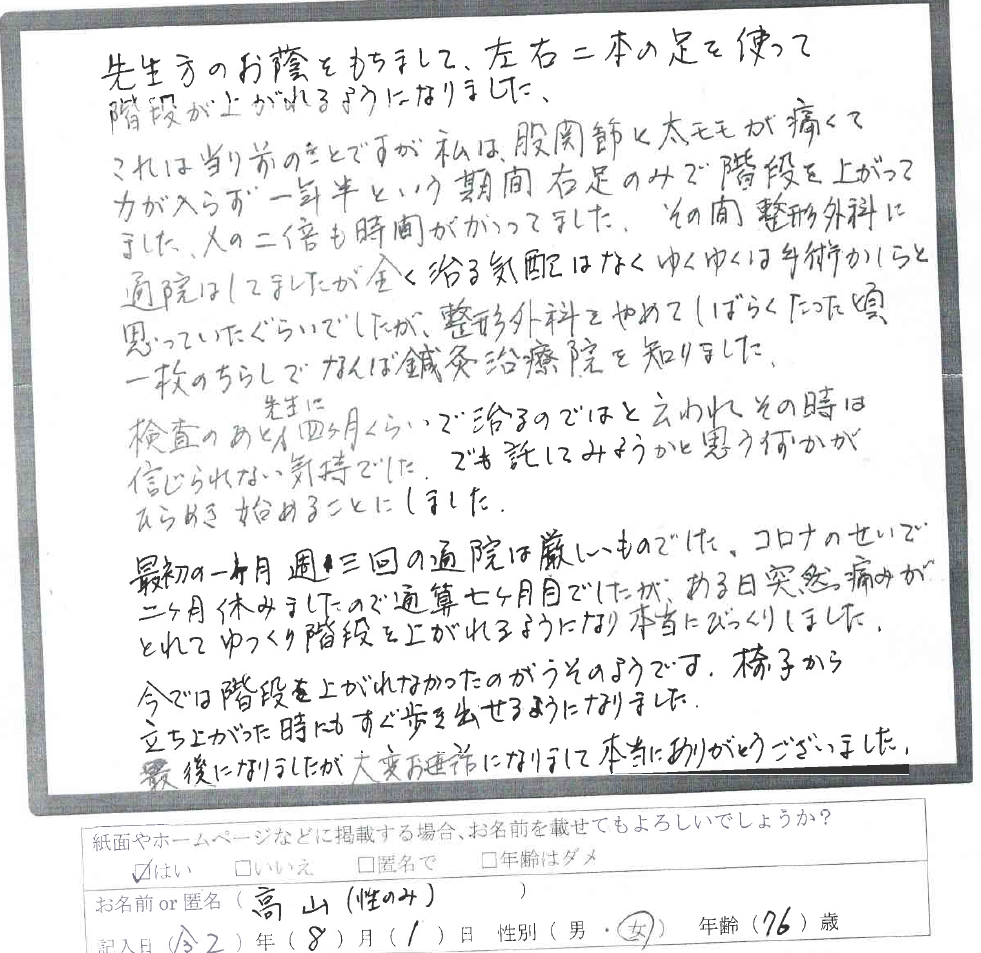 先生方のお蔭をもちまして、左右二本の足を使って
階段が上がれるようになりました、
これは当り前のことですが私は、股関節と太モモが痛くて
力が入らず一年半という期間右足のみで階段を上がって
ました、人の二倍も時間がかかってました、その間整形外科に
通院はしてましたが全く治る気配はなくゆくゆくは手術かしらと
思っていたぐらいでしたが、整形外科をやめてしばらくたった頃
一枚のちらしでなんば鍼灸治療院を知りました、
検査のあと先生に四ヶ月くらいで治るのではと云われその時は
信じられない気持でした、でも託してみようかと思う何かが
ひらめき始めることにしました、
最初の一ヶ月週三回の通院は厳しいものでした、コロナのせいで
二ヶ月休みましたので通算七ヶ月目でしたが、ある日突然痛みが
とれてゆっくり階段を上がれるようになり本当にびっくりしました、
今では階段を上がれなかったのがうそのようです、椅子から
立ち上がった時にもすぐ歩き出せるようになりました、
最後になりましたが大変お世話になりまして本当にありがとうございました、
紙面やホームページなどに掲載する場合、お名前を載せてもよろしいでしょうか？
☑はい □いいえ □匿名で □年齢はダメ
お名前or匿名（高山(性のみ)）
記入日（令2）年（8）月（1）日 性別（男・女） 年齢（76）歳